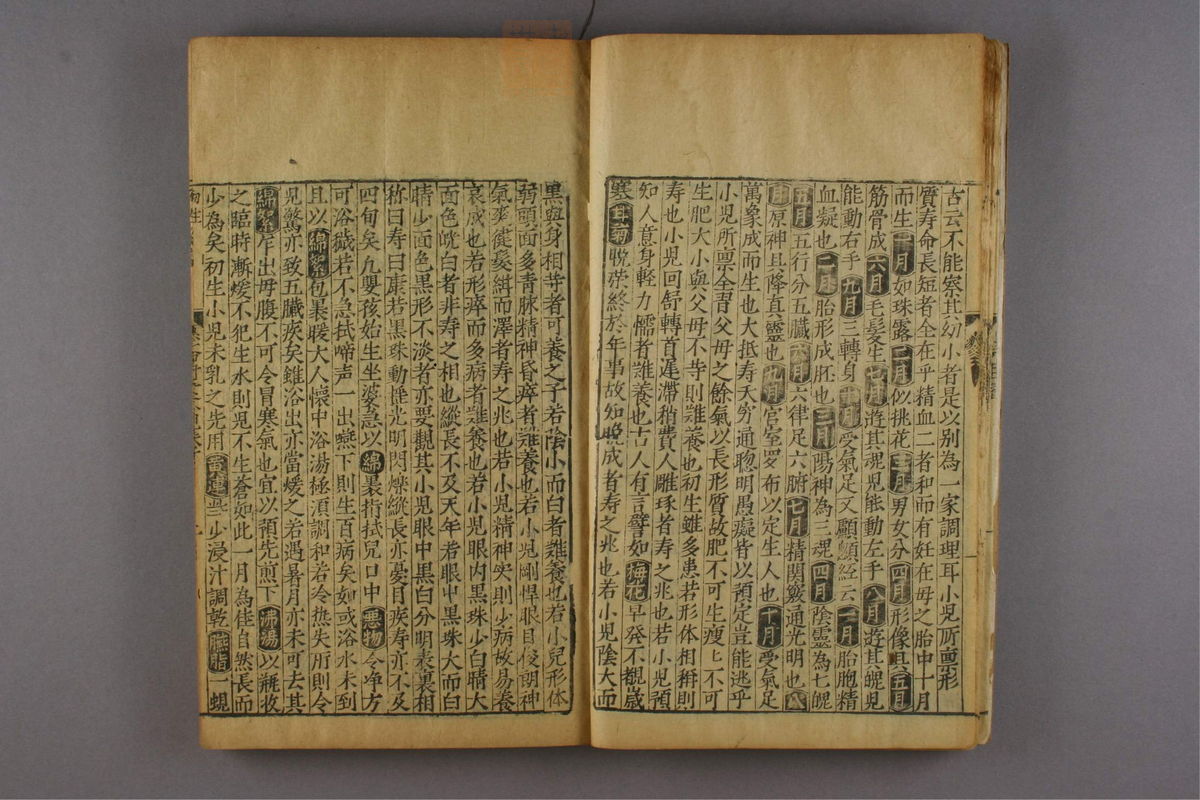 古云不能察其幼小者是以别為一家調理耳小児所禀形
質寿命長短者全在乎精血二者和而有妊在母之胎中十月
而生一月如珠露二月似桃花三月男女分四月形像具五月
筋骨成六月毛髪生七月逰其魂児能動左手八月逰其魄児
能動右手九月三轉身十月受氣足又顱顖経云一月胎胞精
血凝也二月胎形成胚也三月陽神為三魂四月陰靈為七魄
五月五行分五臓六月六律足六腑七月精関竅通光明也八
月原神且降真靈也九月宫室罗布以定生人也十月受氣足
萬象成而生也大抵寿夭穷通聰明愚癡皆以預定豈能逃乎
小児所禀全胥父母之餘氣以長形質故肥不可生瘦上不可
生肥大小與父母不等則難養也初生雖多患若形体相稱則
寿也小児回舒轉首遅滯稍費人雕琢者寿之兆也若小児預
知人意身軽力懦者難養也古人有言譬如梅花早発不覩歳
寒甘菊晩荣終於年事故知晩成者寿之兆也若小児陰大而
黒與身相等者可養之子若陰小而白者難養也若小兒形体
弱頭面多青脉精神昏瘁者難養也若小児剛悍眼目俊朗神
氣爽徤髪緝而澤者寿之兆也若小児精神実則少病故易養
哀戚也若形瘁而多病者難養也若小児眼内黒珠少白睛大
面色㿠白者非寿之相也縱長不及天年若眼中黒珠大而白
睛少面色黒形不淡者亦要觀其小児眼中黒白分明表裏相
称曰寿曰康若黒珠動摇光明閃爍縱長亦憂目疾寿亦不及
四旬矣凡嬰孩始生坐婆急以綿裹指拭兒口中悪物令净方
可浴穢若不急拭啼声一出嚥下則生百病矣如或浴水未到
且以綿絮包裹暖大人懐中浴湯極湏調和若冷热失所則令
児驚亦致五臓疾矣雖浴出亦當煖之若遇暑月亦未可去其
綿絮乍出母腹不可令冒寒氣也宜以預先煎下沸湯以瓶收
之臨時漸煖不犯生水則児不生蒼如此一月為佳自然長而
少為矣初生小児未乳之先用黄連些少浸汁調乾臙脂蜆